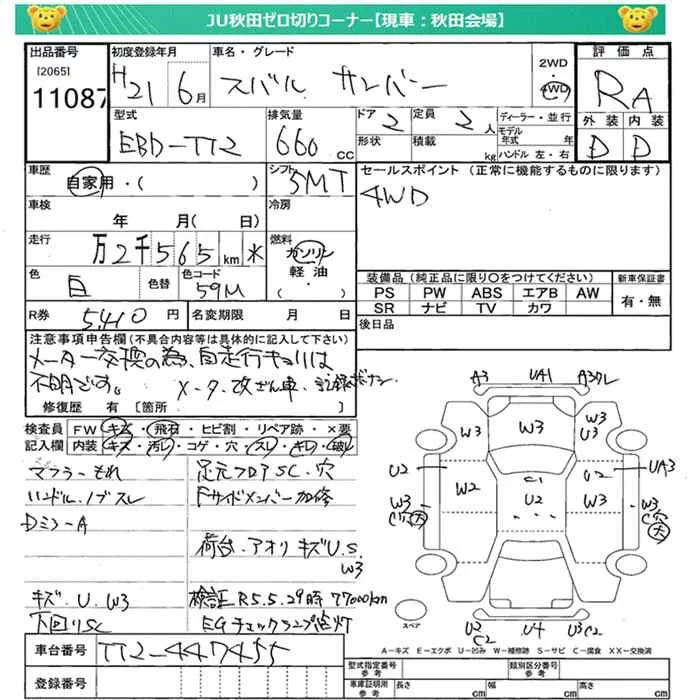 JU秋田ゼロ切りコーナー【現車：秋田会場】
出品番号
[2065]
11087
初度登録年月
H21 6月
車名・グレード
スバル サンバー
2WD
4WD
評価点
RA
外装 内装
D D
型式
EBD-TT2
排気量
660 CC
ドア
2
定員
2人
形状
積載
kg
ディーラー・並行
モデル年式 年
ハンドル 左・右
車歴
自家用・( )
シフト
5MT
セールスポイント (正常に機能するものに限ります)
4WD
車検
年 月(日)
冷房
走行
万2千565km ※
燃料
ガソリン
軽油・
( )
色
白
色替
色コード
59M
装備品 (純正品に限り○をつけてください)
PS PW ABS エアB AW
SR ナビ TV カワ
新車保証書
有・無
R券
5,410円
名変期限 月 日
後日品
注意事項申告欄(不具合内容等は具体的に記入して下さい)
メーター交換の為、自走行キョリは
不明です。 メータ改ざん車
修復歴 有 [箇所 ]
検査員
記入欄
FW キズ・飛石・ヒビ割・リペア跡・×要
内装 キズ・汚レ・コゲ・穴・スレ・キレ・破レ
マフラーもれ
ハンドル、ノブスレ
Dミラ-A
キズ.U.W3
下回りSC
足元フロアSC・穴
Fサイドメンバー加修
荷台.アオリ キズU.S.
W3
検証R5.5.29時 77000km
EGチェックランプ点灯
A3 UA1
W3 W3 W3
U3
C1
U2 W2 U2 U2 UA3
W3 W3 W3
C穴大 C穴大
U2
C2 U4 U3C2
スペア
A-キズ E-エクボ U-凹み W-補修跡 S-サビ C-腐食 XX-交換済
車台番号
TT2-447455
登録番号
型式指定番号
参考
類別区分番号
参考
車庫証明用
参考
長さ cm 幅 cm 高さ cm